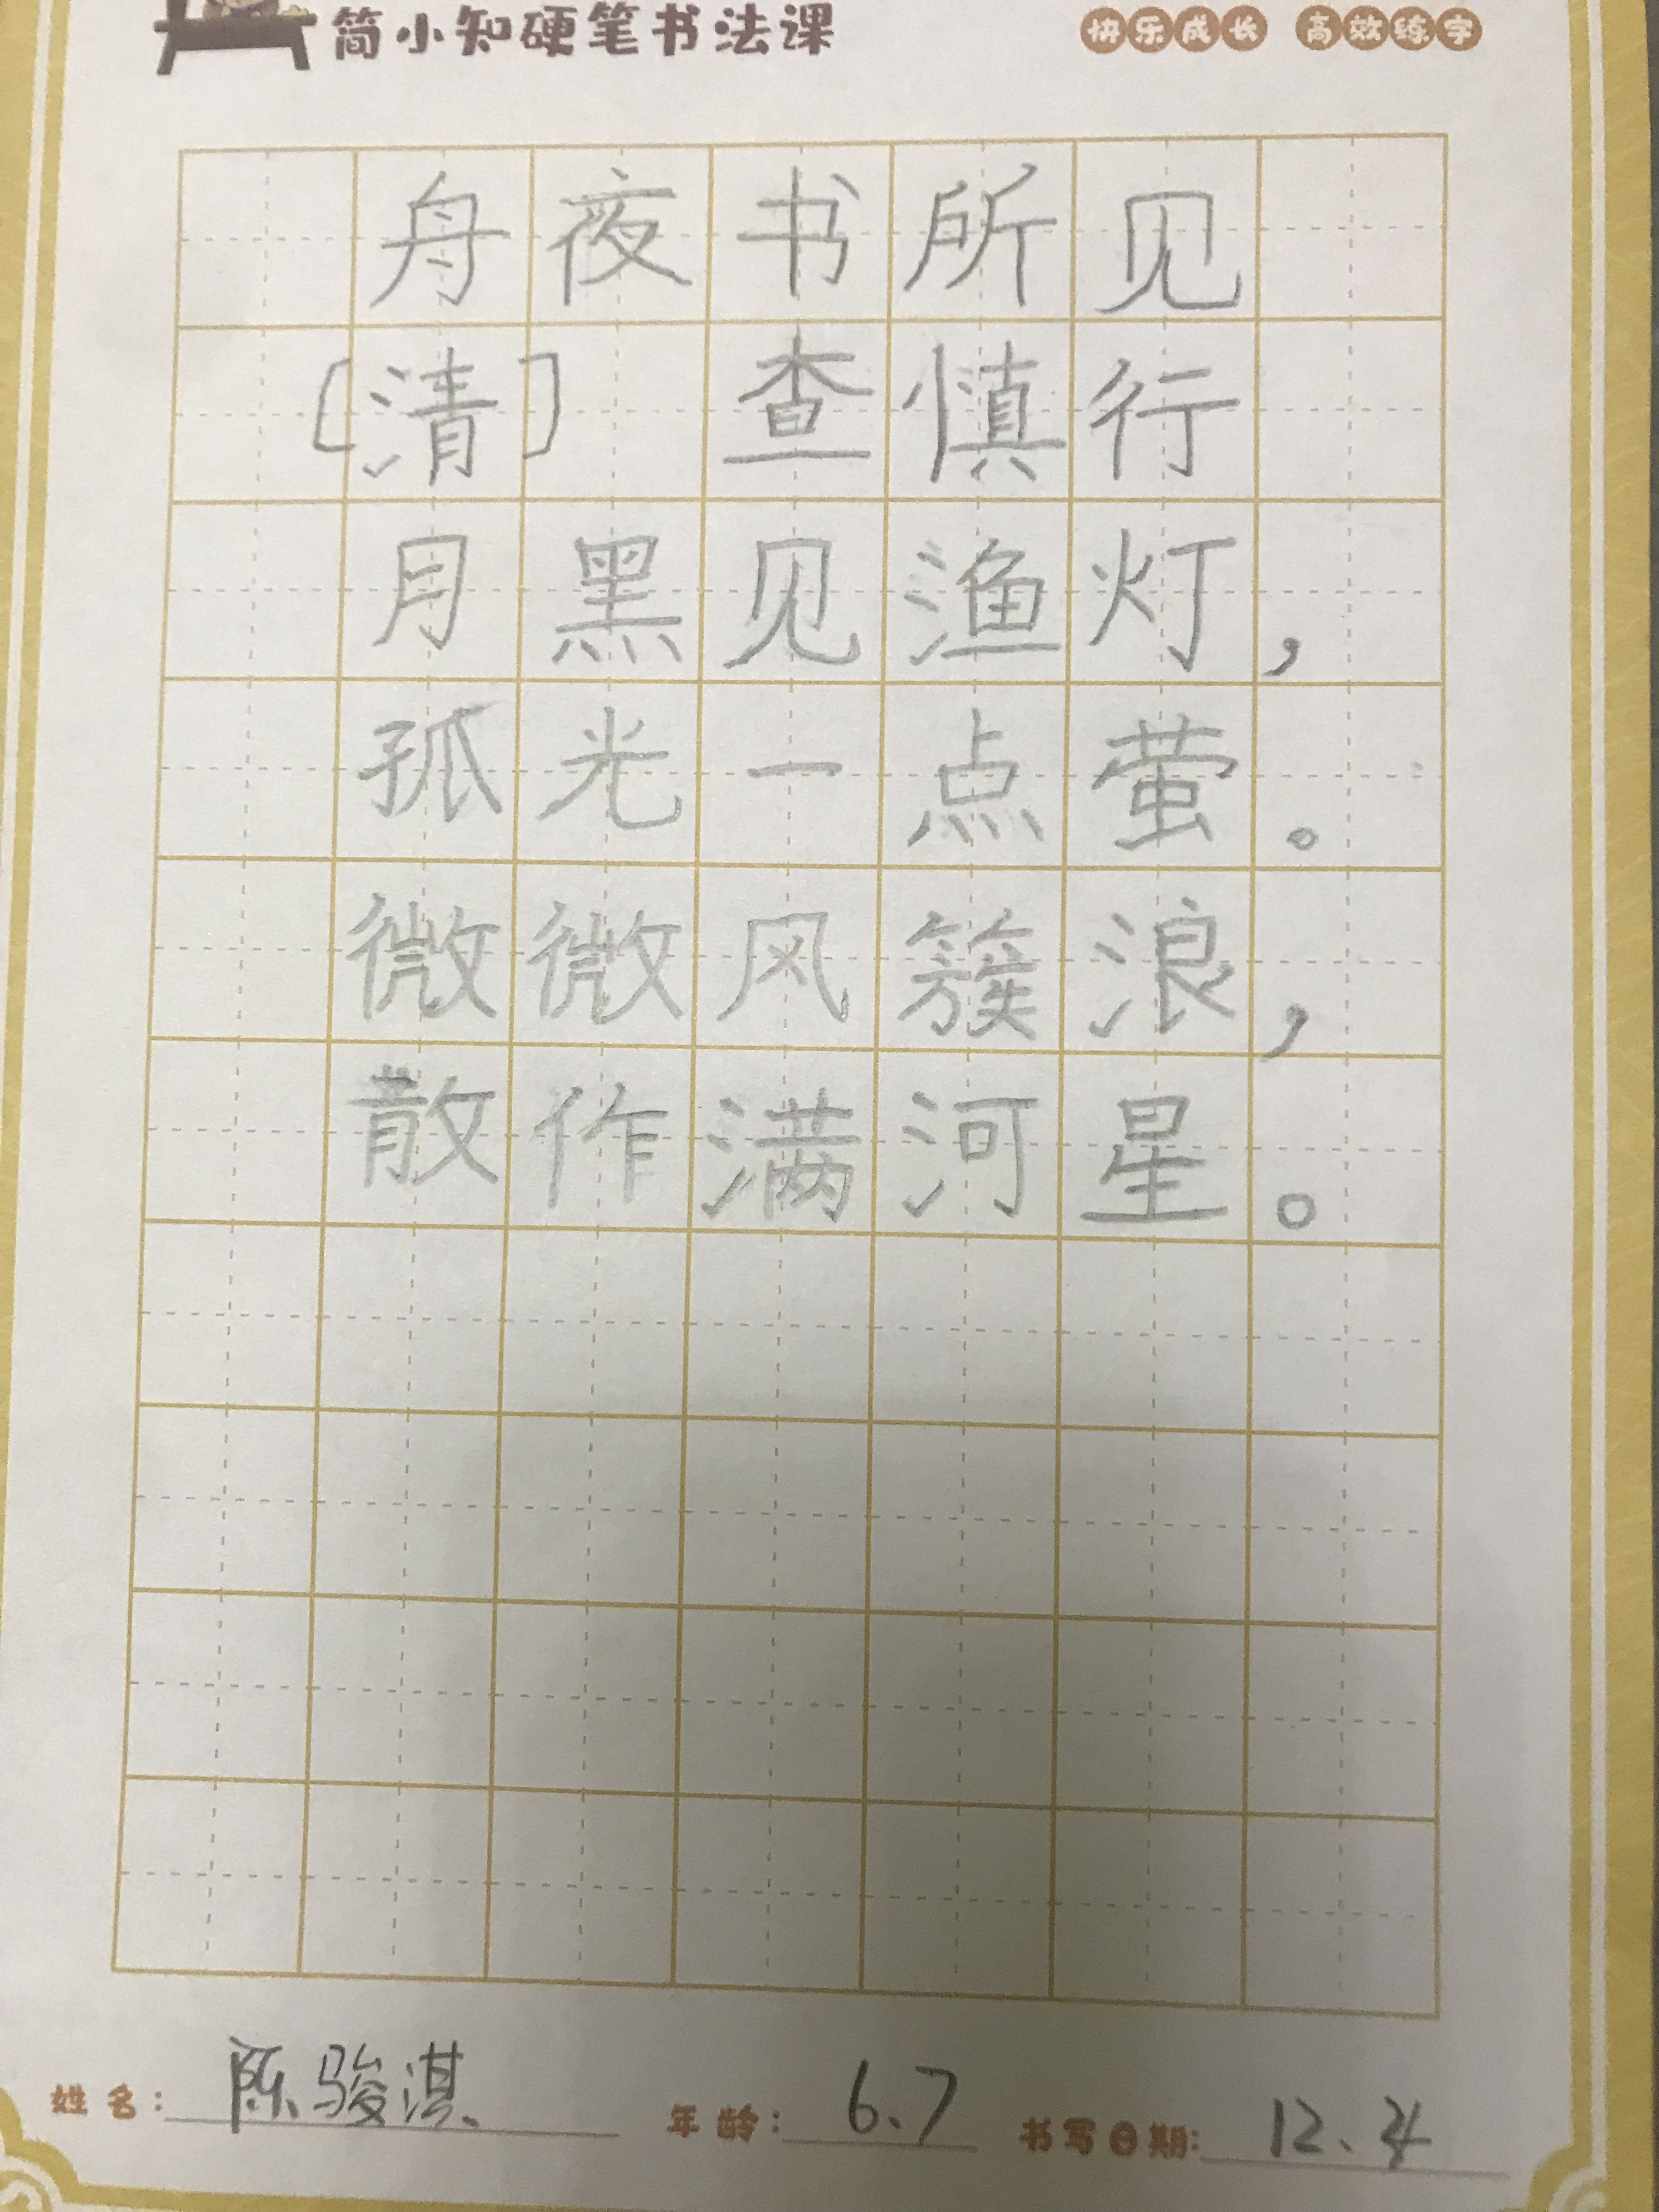 简小知硬笔书法课 快乐成长 高效练字
舟夜书所见
[清] 查慎行
月黑见渔灯，
孤光一点萤。
微微风簇浪，
散作满河星。
姓名：陈骏淇 年龄：6.7 书写日期：12.4